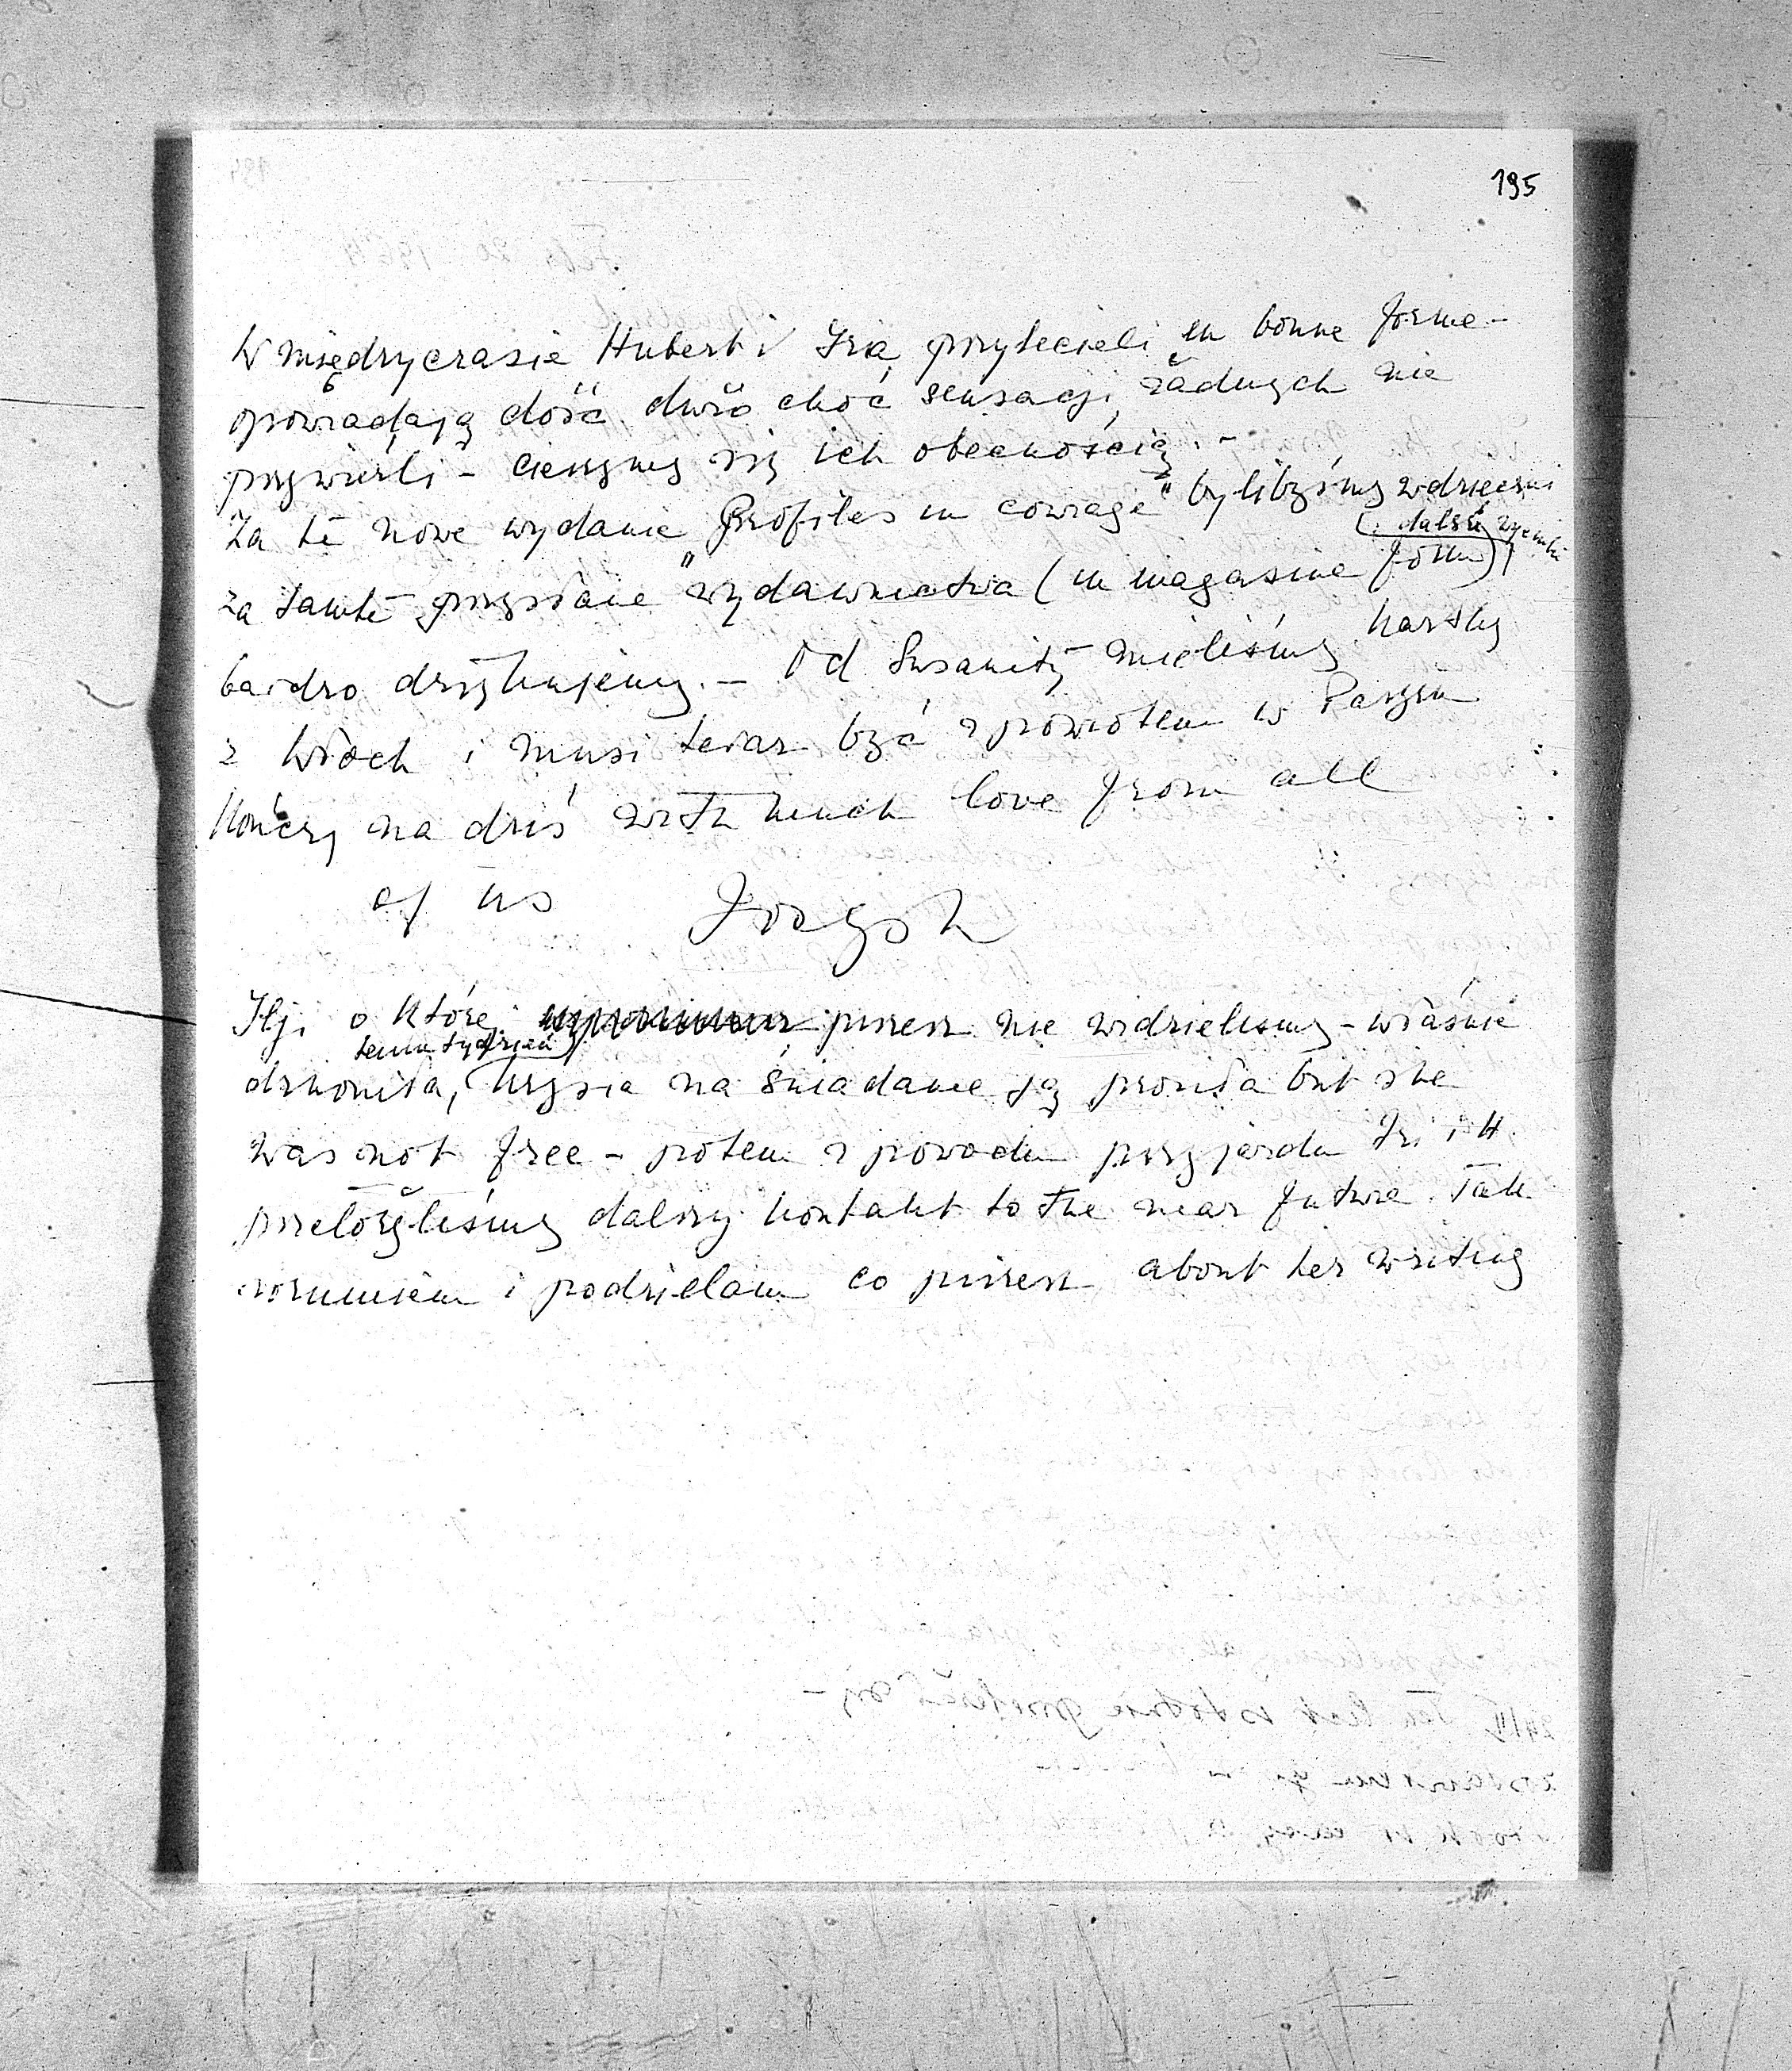 195
W międzyczasie Hubert i Iria przylecieli en bonne forme -
opowiadają dość dużo choć sensacji żadnych nie
przywieźli - cieszymy się ich obecnością. -
Za te nowe wydanie „Profiles in courage" bylibyśmy wdzięczni
(i dalsze wycinki
za tamte przysłane wydawnictwa (in magasine form))
bardzo dziękujemy. - Od Susanity mieliśmy kartkę
z Włoch i musi teraz być z powrotem w Paryżu
Kończę na dziś with much love from all
of us
Ilji o której piszesz nie widzieliśmy - właśnie
temu tydzień
dzwoniła, Krysia na śniadanie ją prosiła but she
was not free - potem z powodu przyjazdu Iri i H.
przełożyliśmy dalszy kontakt to the near future. Tak
rozumiem i podzielam co piszesz about her writing